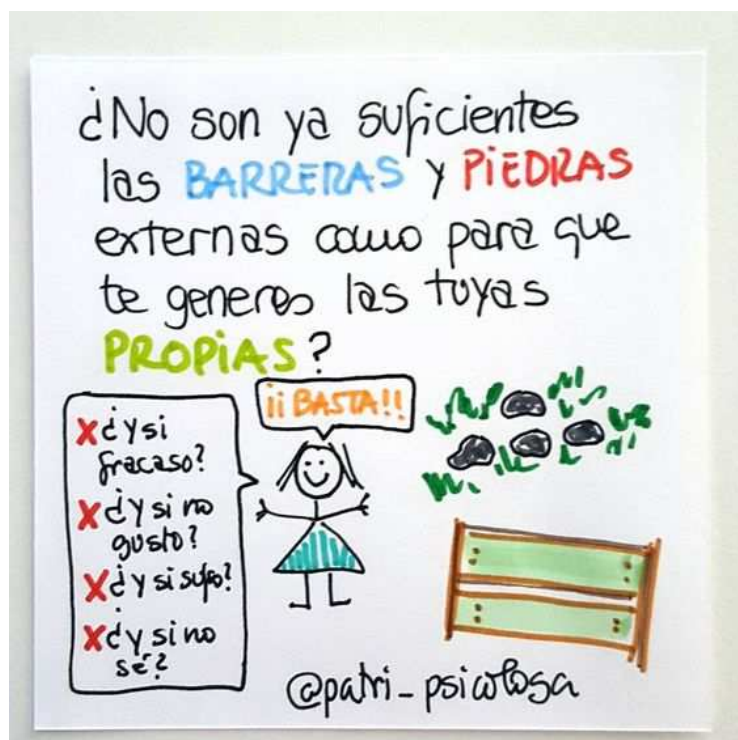 ¿No son ya suficientes
las BARRERAS y PIEDRAS
externas como para que
te generes las tuyas
PROPIAS?
¡¡BASTA!!
X ¿Y si
fracaso?
X ¿Y si no
gusto?
X ¿Y si sufro?
X ¿Y si no
sé?
@patri_psicologa